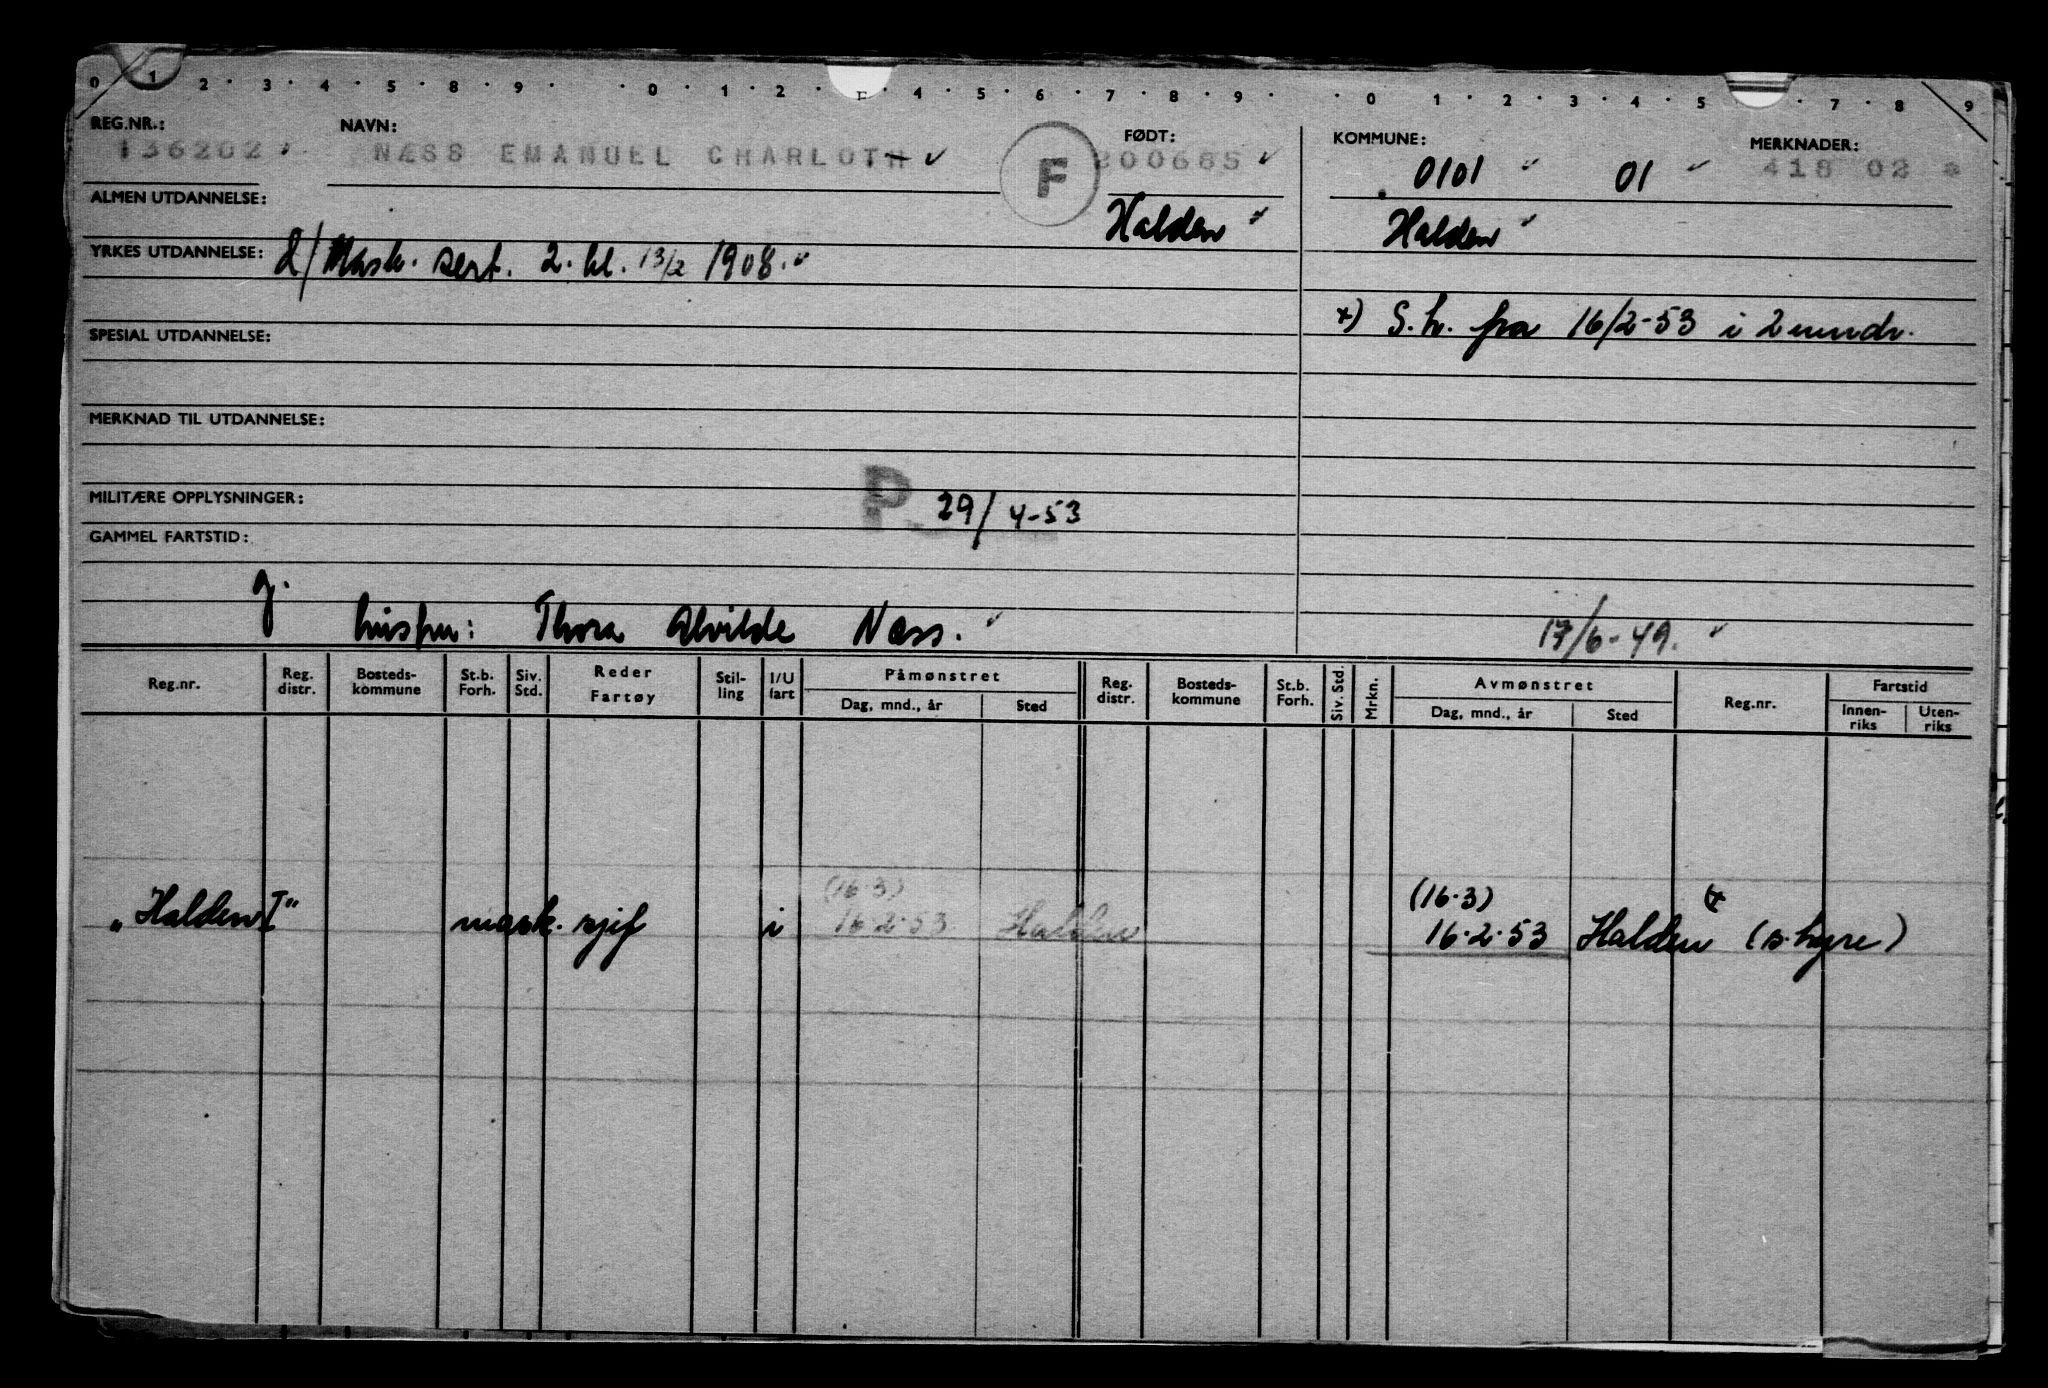 0 1 2 · 3 · 4 · 5 · 8 · 9 · · 0 · 1 · 2 · F · 4 · 5 · 6 · 7 · 8 · 9 · · 0 · 1 · 2 · 3 · 4 · 5 · 7 · 8 · 9
REG.NR.: NAVN: FØDT: KOMMUNE: MERKNADER:
136202 NÆSS EMANUEL CHARLOTH F 200685 0101 01 418 02
ALMEN UTDANNELSE: Halden Halden
YRKES UTDANNELSE: d/ Mask. sert. 2. kl. 13/2 1908.
SPESIAL UTDANNELSE: +) S.h. fra 16/2-53 i 2 mndr.
MERKNAD TIL UTDANNELSE:
MILITÆRE OPPLYSNINGER: P. 29/4-53
GAMMEL FARTSTID:
g. hustru: Thora Alvilde Næss. 17/6-49.
Reg.nr. Reg. distr. Bosteds-kommune St.b. Forh. Siv. Std. Reder Fartøy Stil-ling I/U fart Påmønstret Reg. distr. Bosteds-kommune St.b. Forh. Siv. Std. Mrkn. Avmønstret Reg.nr. Fartstid
Dag, mnd., år Sted Dag, mnd., år Sted Innen-riks Uten-riks
(16.3) (16.3) +
"Halden I" mask. sjef i 16.2.53 Halden 16.2.53 Halden (s.hyre)